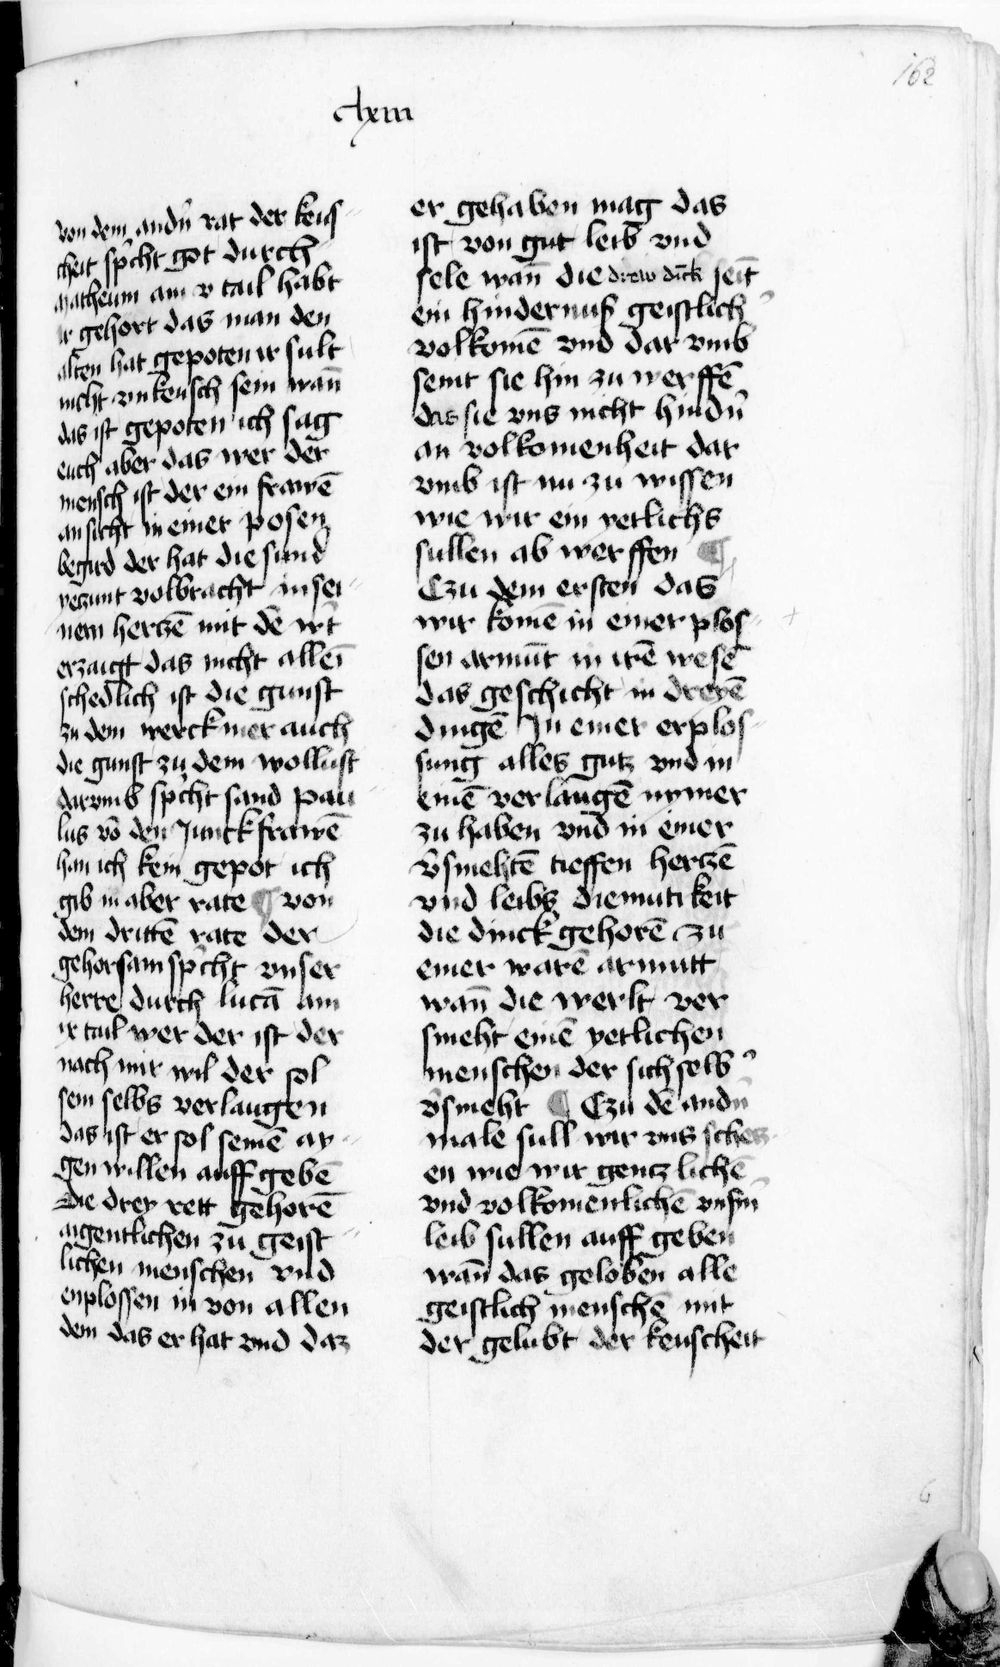 162
clxiii
von dem andn̄ rat der keus⸗
cheit spͥcht got durch
matheum am v tail habt
ir gehort das man den
alten hat gepoten ir sult
nicht vnkeusch sein wan̄
das ist gepoten ich sag
euch aber das wer der
mensch ist der ein frawē
an sicht in einer posen
begird der hat die sund
yeczunt volbracht in sei⸗
nem herczē mit dē wͥt
erzaigt das nicht alleī
schedlich ist die gunst
zu dem werck mer auch
die gunst zu dem wollust
darvmb spͥcht sand pau⸗
lus vō den Junckfrawē
han ich kein gepot ich
gib in aber rate ¶ von
dem drittē rate der
gehorsam spͥcht vnser
herre durch lucā am
ix tail wer der ist der
nach mir wil der sol
sein selbs verlaugen
das ist er sol seinē ay⸗
gen willen auff gebē
Die drey rett gehorē
aigentlichen zu geist⸗
lichen menschen vnd
enplossen in von allen
dem das er hat vnd daz
er gehaben mag das
ist von gut leib vnd
sele wan̄ die drew dīck seīt
ein hindernuß geistlich͛
volkomē vnd dar vmb
seint sie hin zu werffē
das sie vns nicht hindn̄
an volkomenheit dar
vmb ist nu zu wissen
wie wir ein yetlichs
sullen ab werffen ¶
Czu dem ersten das
wir komē in einer plos⸗
sen armūt in irē wesē
das geschicht in dreyē
dingē In einer erplos⸗
sung alles gutz vnd in
einē verlaugē nymer
zu haben vnd in einer
v̄smehtē tieffen herczē
vnd leibs diemutikeit
die dinck gehorē zu
einer warē armutt
wan̄ die werlt ver
smeht einē yetlichen
menschen der sich selb͛
v̄smeht ¶ Czu dē andn̄
male sull wir vns schecz
en wie wir gentzlichē
vnd volkomenlichē vnsn̄
leib sullen auff geben
wan̄ das geloben alle
geistlich menschē mit
der gelubt der keuscheit